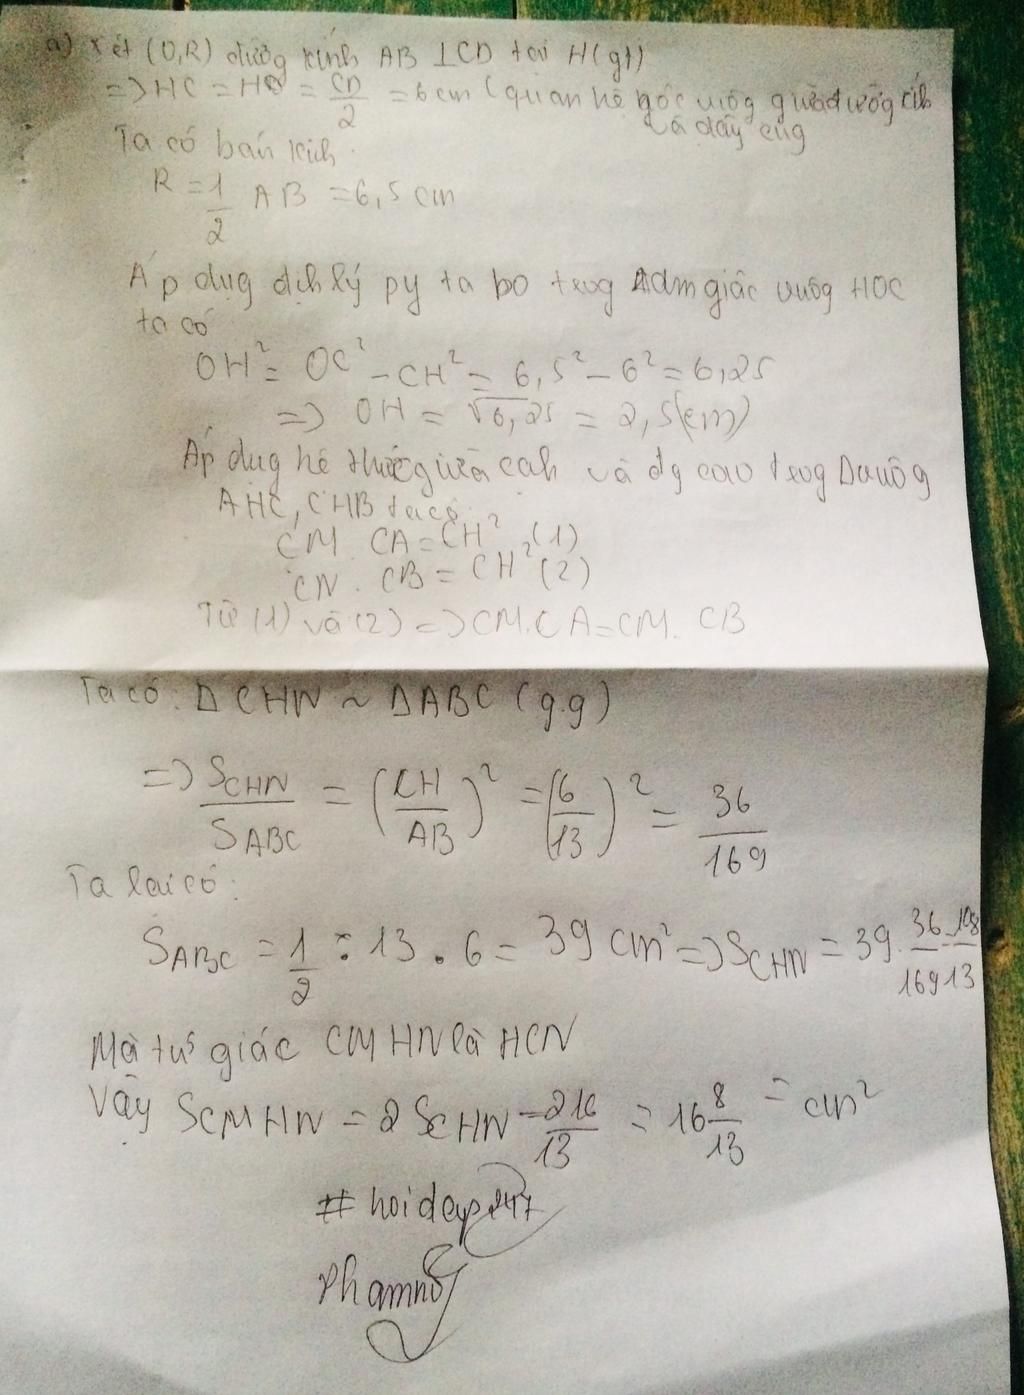 a) Xét (O,R) đường kính AB ⊥CD tại H(gt)
=> HC = HD = CD/2 = 6 cm (quan hệ góc vuôg giữa đườg kíh
và dây cug
Ta có bán kích
R = 1/2 AB = 6,5 cm
Áp dụg địh lý py ta bo trog tam giác vuôg HOC
ta có
OH² = OC² - CH² = 6,5² - 6² = 6,25
=> OH = √6,25 = 2,5(cm)
Áp dụg hệ thức giữa cạh và đg cao trog Δ vuôg
AHC, CHB ta có
CM . CA = CH² (1)
CN . CB = CH² (2)
Từ (1) và (2) => CM.CA = CM. CB
Ta có: Δ CHN ~ Δ ABC (g.g)
=> SCHN/SABC = (CH/AB)² = (6/13)² = 36/169
Ta lại có:
SABC = 1/2 : 13 . 6 = 39 cm² => SCHN = 39 . 36/169 = 108/13
Mà tứ giác CMHN là HCN
Vậy SCMHN = 2 SCHN = 216/13 = 16 8/13 = cm²
# hoidap247